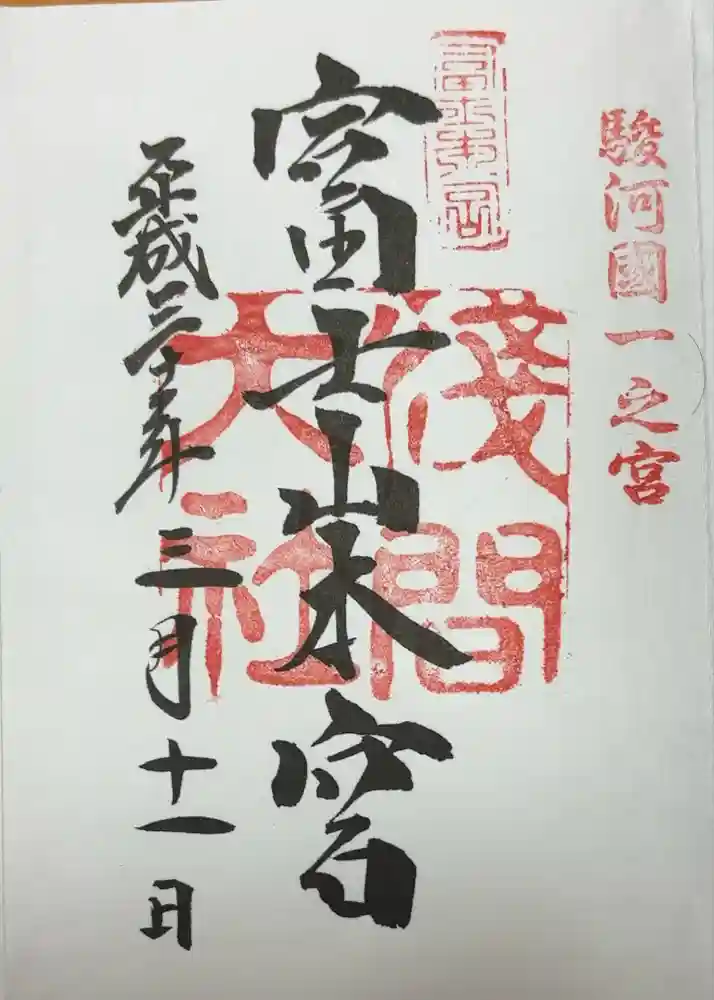 駿河國一之宮
富士本宮
淺間大社
富士山本宮
平成三十一年三月十一日